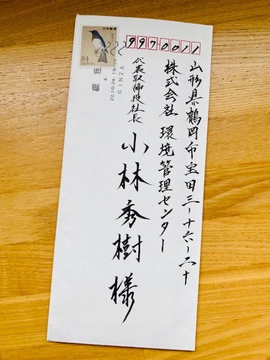 9970011
山形県鶴岡市宝田三-十六-二十
株式会社 環境管理センター
代表取締役社長
小林秀樹様
84
日本郵便
GINZA